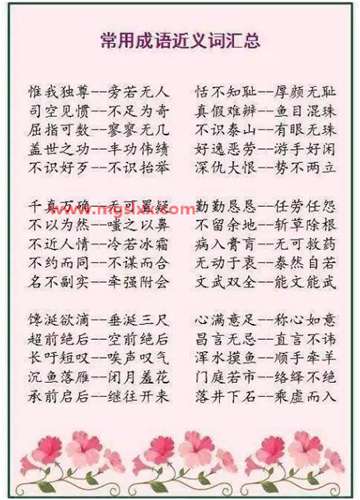 常用成语近义词汇总
惟我独尊--旁若无人 恬不知耻--厚颜无耻
司空见惯--不足为奇 真假难辨--鱼目混珠
屈指可数--寥寥无几 不识泰山--有眼无珠
盖世之功--丰功伟绩 好逸恶劳--游手好闲
不识好歹--不识抬举 深仇大恨--势不两立
千真万确--无可置疑 勤勤恳恳--任劳任怨
www.mgslxx.com
不以为然--嗤之以鼻 不留余地--斩草除根
不近人情--冷若冰霜 病入膏肓--无可救药
不约而同--不谋而合 无动于衷--泰然自若
名不副实--牵强附会 文武双全--能文能武
馋涎欲滴--垂涎三尺 心满意足--称心如意
超前绝后--空前绝后 昌言无忌--直言不讳
长吁短叹--唉声叹气 浑水摸鱼--顺手牵羊
沉鱼落雁--闭月羞花 门庭若市--络绎不绝
承前启后--继往开来 落井下石--乘虚而入